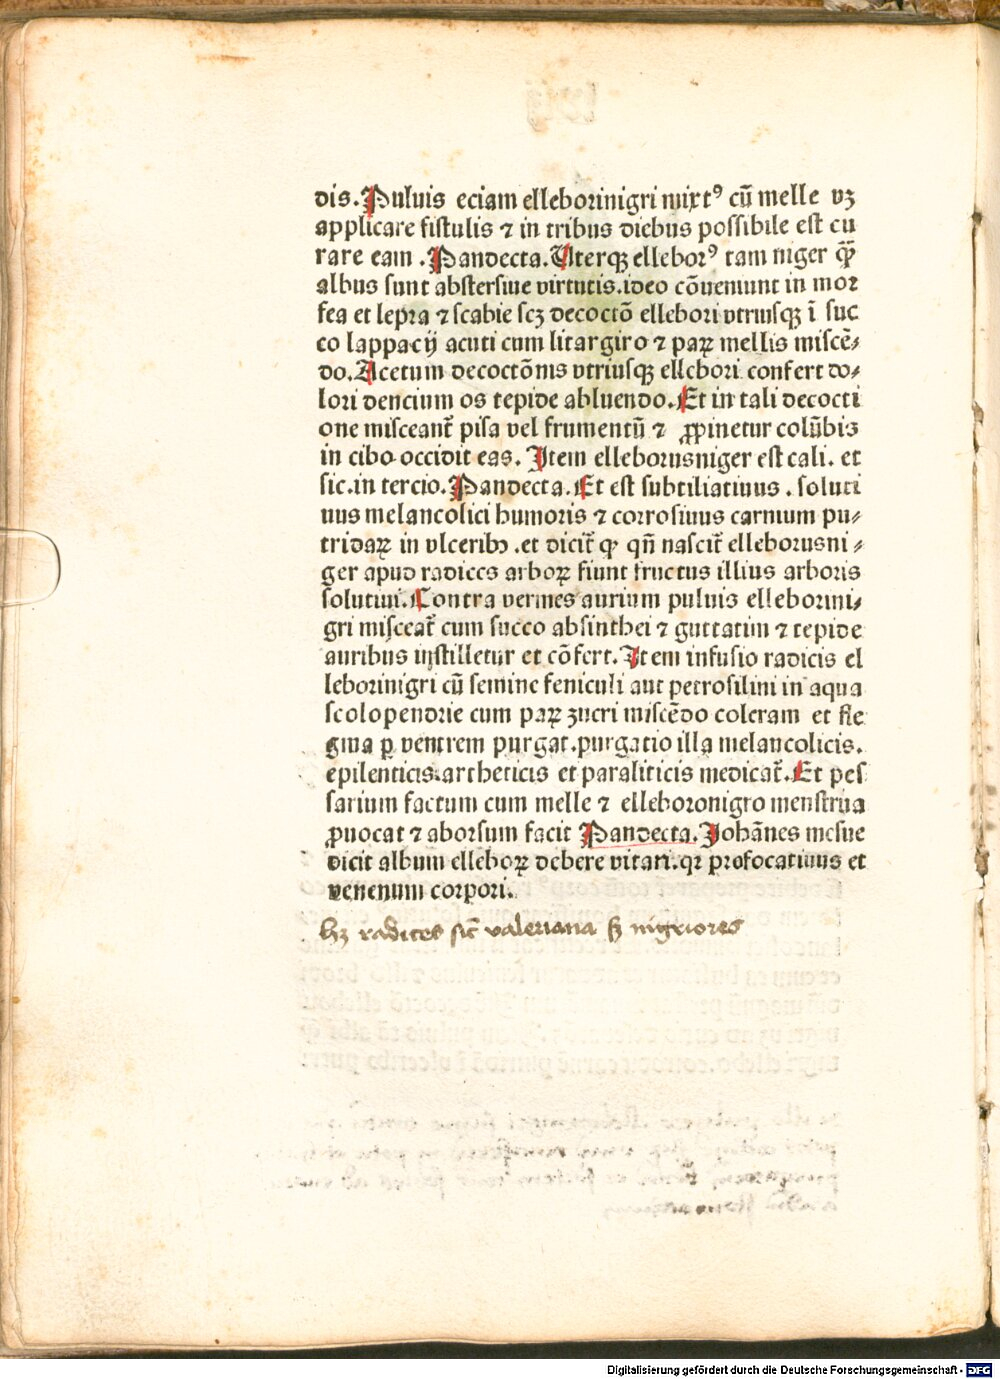 dis. Puluis eciam elleborinigri mixtꝰ cū melle vꝫ
applicare fistulis ⁊ in tribus diebus possibile est cu
rare eam . Pandecta. Uterqꝫ elleborꝰ tam niger qꝫ̄
albus sunt abstersiue virtutis. ideo cōueniunt in mor
fea et lepra ⁊ scabie scꝫ decoctō ellebori vtriusqꝫ ī suc
co lappacij acuti cum litargiro ⁊ paꝝ mellis miscē⸗
do. Acetum decoctōnis vtriusqꝫ ellebori confert do⸗
lori dencium os tepide abluendo. Et in tali decocti
one misceant̄ pisa vel frumentū ⁊ ꝓpinetur colūbis
in cibo occidit eas. Item elleborusniger est cali. et
sic. in tercio. Pandecta. Et est subtiliatiuus . soluti
uus melancolici humoris ⁊ corrosiuus carnium pu⸗
tridaꝝ in vlceribꝫ .et dicit̄ ꝙ qn̄ nascit̄ elleborusni⸗
ger apud radices arboꝝ fiunt fructus illius arboris
solutiui. Contra vermes aurium puluis elleborini⸗
gri misceat̄ cum succo absinthei ⁊ guttatim ⁊ tepide
auribus instilletur et cōfert. Item infusio radicis el
leborinigri cū semine feniculi aut petrosilini in aqua
scolopendrie cum paꝝ zucri miscēdo coleram et fle
gma ꝑ ventrem purgat. purgatio illa melancolicis.
epilenticis. artheticis et paraliticis medicat̄. Et pes
sarium factum cum melle ⁊ elleboronigro menstrua
ꝓuocat ⁊ aborsum facit Pandecta. Johānes mesue
dicit album elleboꝝ debere vitari. qꝛ prefocatiuus et
venenum corpori.
hꝫ radices sic̄ valeriana sꝫ nigriores
Digitalisierung gefördert durch die Deutsche Forschungsgemeinschaft - DFG